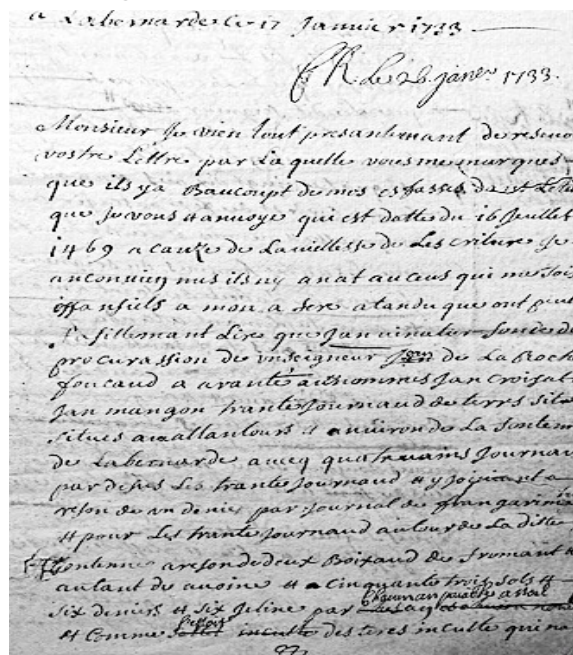 a Labernarde Ce 17 Janvier 1733
R. le 26 janer 1733.
Monsieur Je vien tout presantemant de resevo
vostre Lettre par La quelle vous me marques
que ils ya Baucoupt de mos esfasses da
que Je vous anvoye qui est datte du 16 Jeullet
1469 a cauze de La viellesse de Les criture Je
anconvien mis ils ny anat aucus qui me sois
offansiels a mon a fere atandu que ont peut
fasillemant Lire que Jan soude de
procurassion de monseigneur Jan de La Roch
foucaud a aranté aus nommes Jan Croisat
Jan mangon trante Journaud de terres
situes au allantours & anviron de La fonten
de Labernarde avecq quatre vains Journau
par desus Les trante Journaud & y Joignant a
reson de un denier par Journal de
& pour Les trante Journaud autour de La ditte
fontenne a reson de deux Boixaud de fromant &
autant de avoine & a Cinquante trois sols &
chacun an
six deniers & six Jeline par
& Comme inculte des teres inculte qui